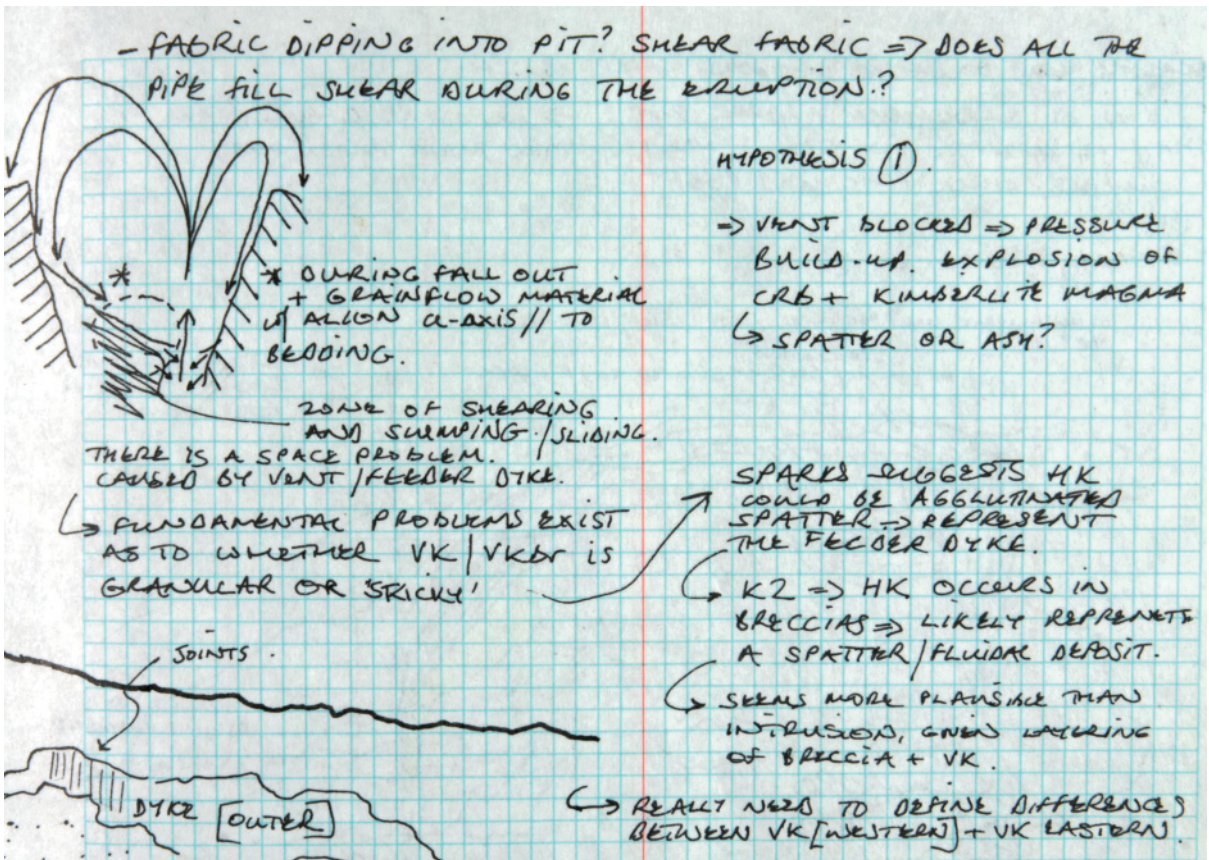 - FABRIC DIPPING INTO PIT? SHEAR FABRIC => DOES ALL THE
PIPE FILL SHEAR DURING THE ERUPTION?
* DURING FALL OUT
+ GRAINFLOW MATERIAL
w/ ALIGN a-AXIS // TO
BEDDING.
*
ZONE OF SHEARING
AND SLUMPING / SLIDING.
THERE IS A SPACE PROBLEM.
CAUSED BY VENT / FEEDER DYKE.
↳ FUNDAMENTAL PROBLEMS EXIST
AS TO WHETHER VK / VKBr IS
GRANULAR OR 'STICKY'
JOINTS.
DYKE [OUTER]
HYPOTHESIS ①.
=> VENT BLOCKED => PRESSURE
BUILD-UP. EXPLOSION OF
CRB + KIMBERLITE MAGMA
↳ SPATTER OR ASH?
SPARKS SUGGESTS HK
COULD BE AGGLUTINATED
SPATTER → REPRESENT
THE FEEDER DYKE.
↳ K2 => HK OCCURS IN
BRECCIAS => LIKELY REPRENETS
A SPATTER / FLUIDAL DEPOSIT.
↳ SEEMS MORE PLAUSIBLE THAN
INTRUSION, GIVEN LAYERING
OF BRECCIA + VK.
↳ REALLY NEED TO DEFINE DIFFERENCES
BETWEEN VK [WESTERN] + VK EASTERN.